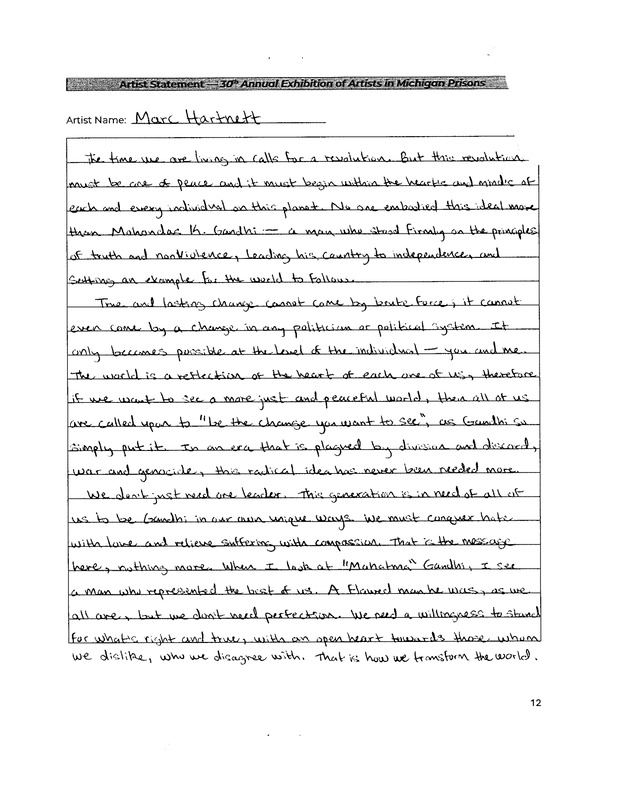 Artist Statement — 30th Annual Exhibition of Artists in Michigan Prisons
Artist Name: Marc Hartnett
The time we are living in calls for a revolution. But this revolution
must be one of peace and it must begin within the hearts and minds of
each and every individual on this planet. No one embodied this ideal more
than Mohandas K. Gandhi — a man who stood firmly on the principles
of truth and nonviolence, leading his country to independence, and
setting an example for the world to follow.
True and lasting change cannot come by brute force; it cannot
even come by a change in any politician or political system. It
only becomes possible at the level of the individual — you and me.
The world is a reflection of the heart of each one of us, therefore
if we want to see a more just and peaceful world, then all of us
are called upon to "be the change you want to see", as Gandhi so
simply put it. In an era that is plagued by division and discord,
war and genocide, this radical idea has never been needed more.
We don't just need one leader. This generation is in need of all of
us to be Gandhi in our own unique ways. We must conquer hate
with love and relieve suffering with compassion. That is the message
here, nothing more. When I look at "Mahatma" Gandhi, I see
a man who represented the best of us. A flawed man he was, as we
all are, but we don't need perfection. We need a willingness to stand
for what's right and true, with an open heart towards those whom
we dislike, who we disagree with. That is how we transform the world.
12